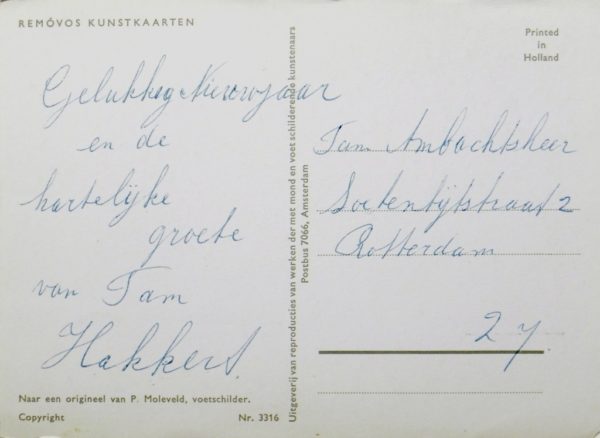 REMÓVOS KUNSTKAARTEN
Gelukkig Nieuwjaar
en de
hartelijke
groete
van Fam
Hakkers.
Naar een origineel van P. Moleveld, voetschilder.
Copyright Nr. 3316
Uitgeverij van reproducties van werken der met mond en voet schilderende kunstenaars
Postbus 7066, Amsterdam
Printed
in
Holland
Fam Ambachtsheer
Soetendijkstraat 2
Rotterdam
27